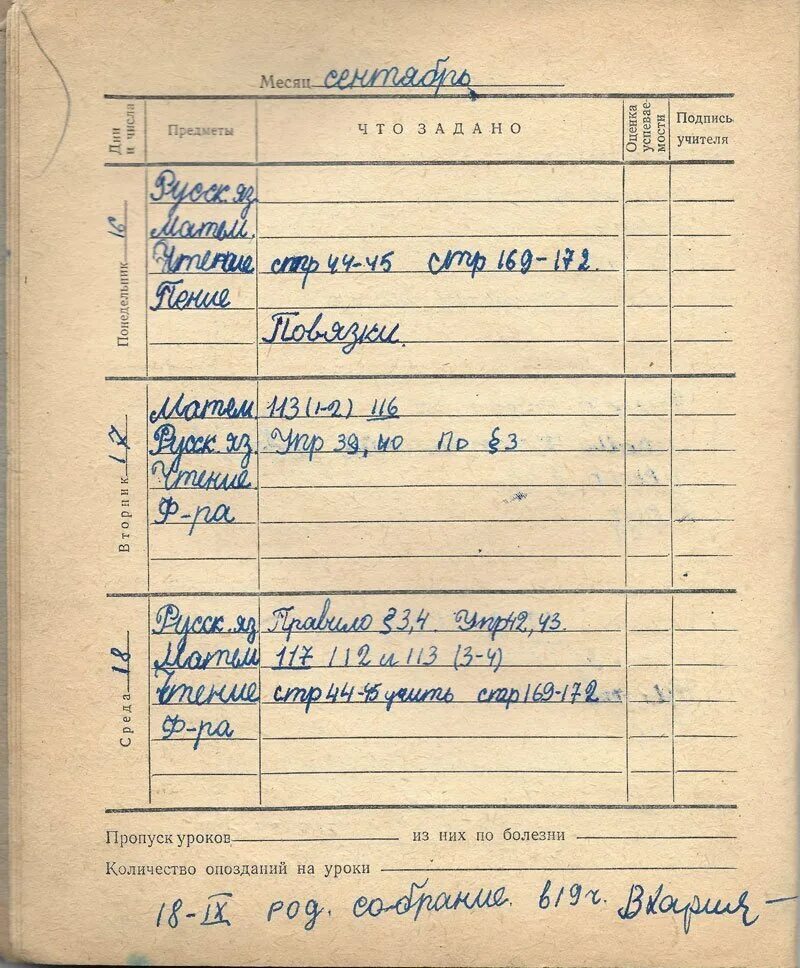 Месяц сентябрь
Дни и числа Предметы ЧТО ЗАДАНО Оценка успевае-мости Подпись учителя
Понедельник 16
Русск. яз.
Матем.
Чтение стр 44-45 стр 169-172.
Пение
Повязки.
Вторник 17
Матем 113 (1-2) 116
Русск. яз. Упр 39, 40 по § 3
Чтение.
Ф-ра
Среда 18
Русск. яз Правило § 3,4. Упр 42, 43.
Матем 117 112 и 113 (3-4)
Чтение стр 44-45 учить стр 169-172
Ф-ра
Пропуск уроков из них по болезни
Количество опозданий на уроки
18-IX род. собрание. в 19 ч.